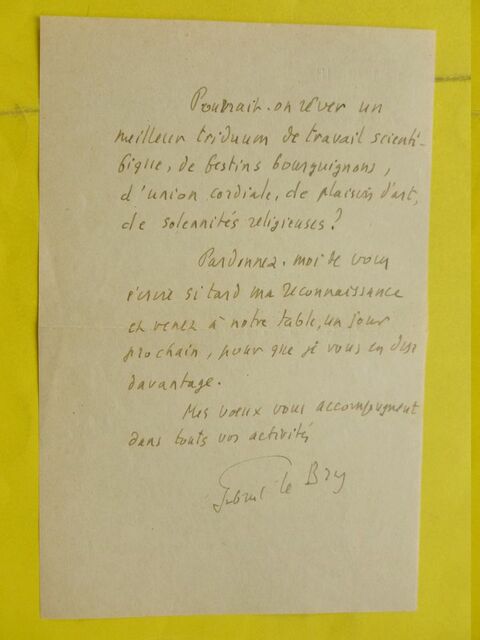 Pourrait-on rêver un
meilleur triduum de travail scienti-
fique, de festins bourguignons,
d'union cordiale, de plaisirs d'art,
de solennités religieuses ?
Pardonnez-moi de vous
écrire si tard ma reconnaissance
et venez à notre table, un jour
prochain, pour que je vous en dise
davantage.
Mes vœux vous accompagnent
dans toutes vos activités
Gabriel le Bras